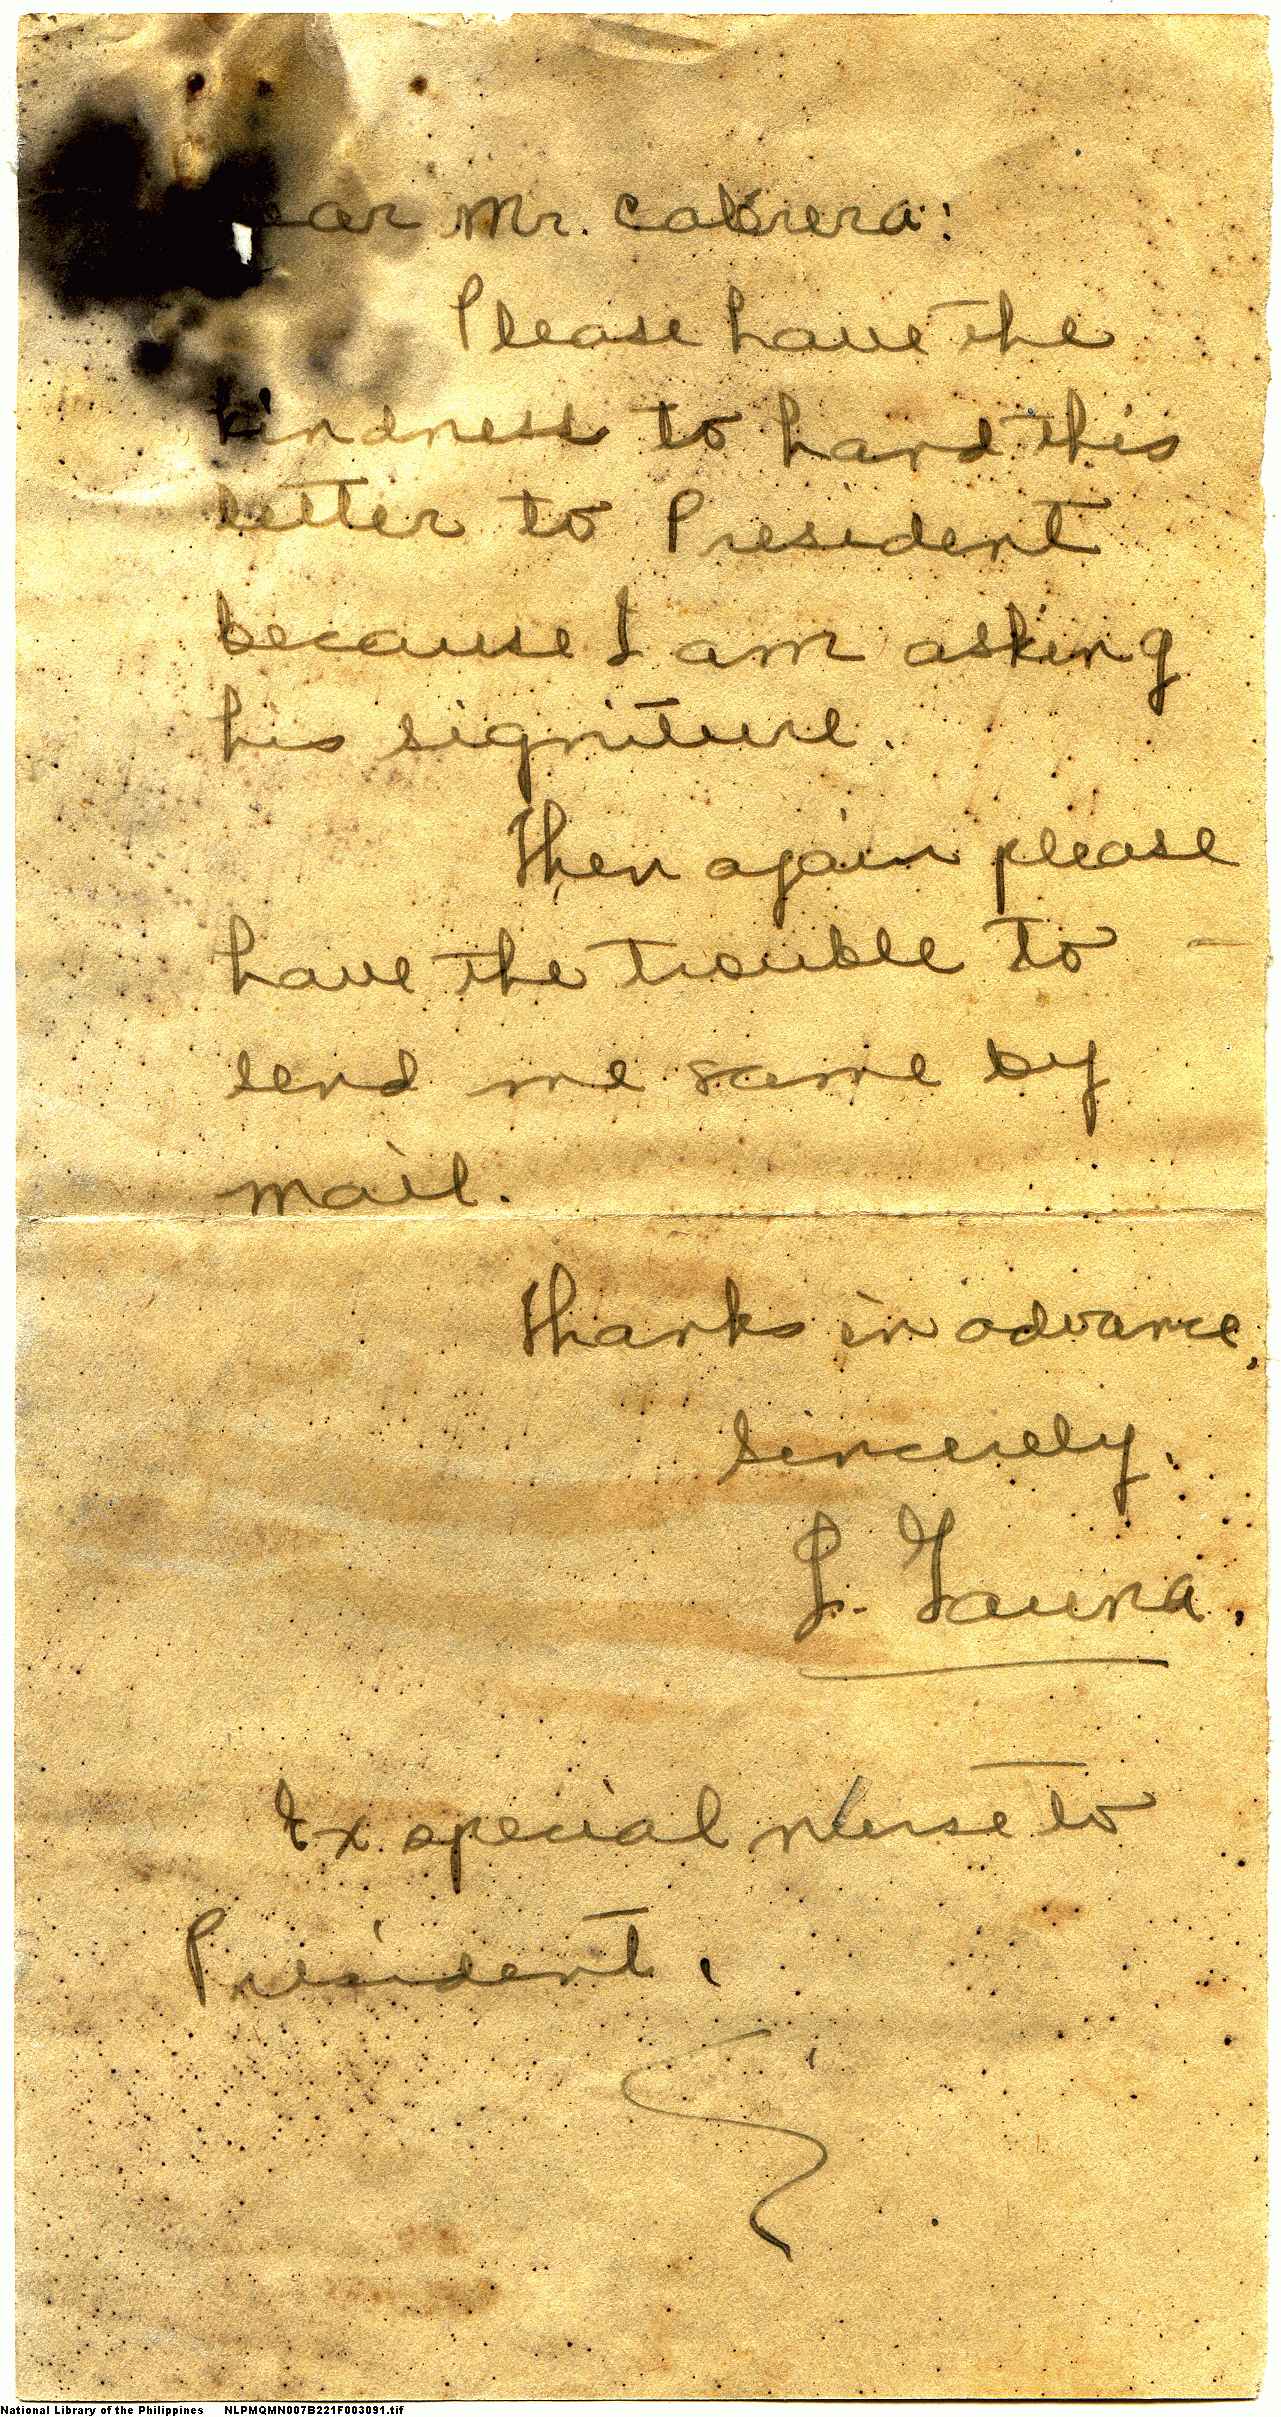 ear Mr. Cabrera:
Please have the
kindness to hand this
letter to President
because I am asking
his signiture.
Then again please
have the trouble to
send me same by
mail.
Thanks in advance,
Sincerely,
L. Gauna.
Ex special nurse to
President.
National Library of the Philippines NLPMQMN007B221F003091.tif